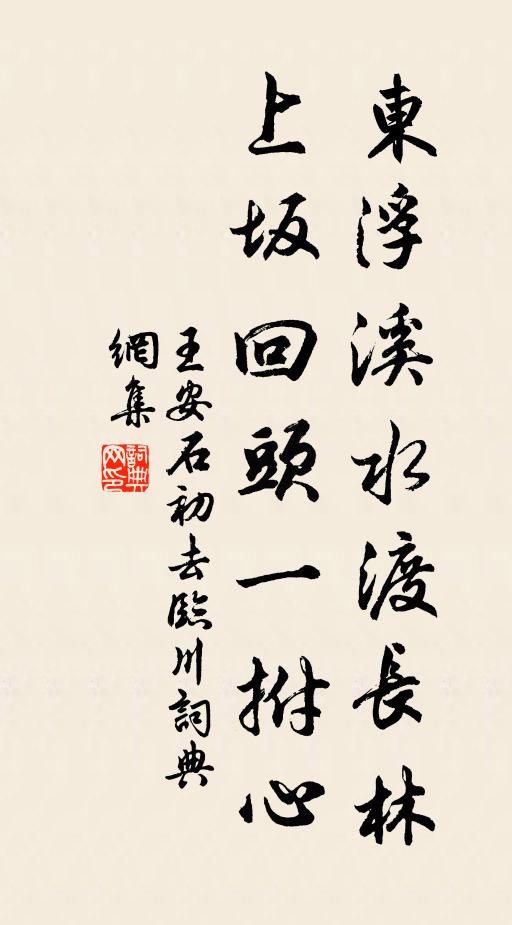 東浮溪水渡長林
上坂回頭一拊心
王安石初去臨川詞典
網集
詞典網印